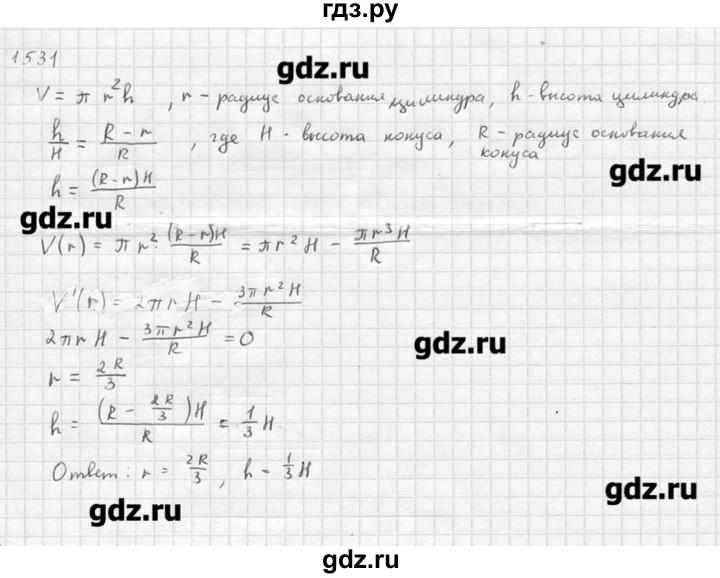 гдз.ру
1531
gdz.ru
V = π r²h , r - радиус основания цилиндра, h - высота цилиндра.
h/H = (R - r)/R , где H - высота конуса, R - радиус основания конуса
gdz.ru
h = (R-r)H/R
gdz.ru
V(r) = π r² · (R-r)H/R = πr²H - πr³H/R
V'(r) = 2πrH - 3πr²H/R
2πrH - 3πr²H/R = 0
gdz.ru
r = 2R/3
h = (R - 2R/3)H/R = 1/3 H
Ответ: r = 2R/3 , h = 1/3 H
gdz.ru
gdz.ru
gdz.ru